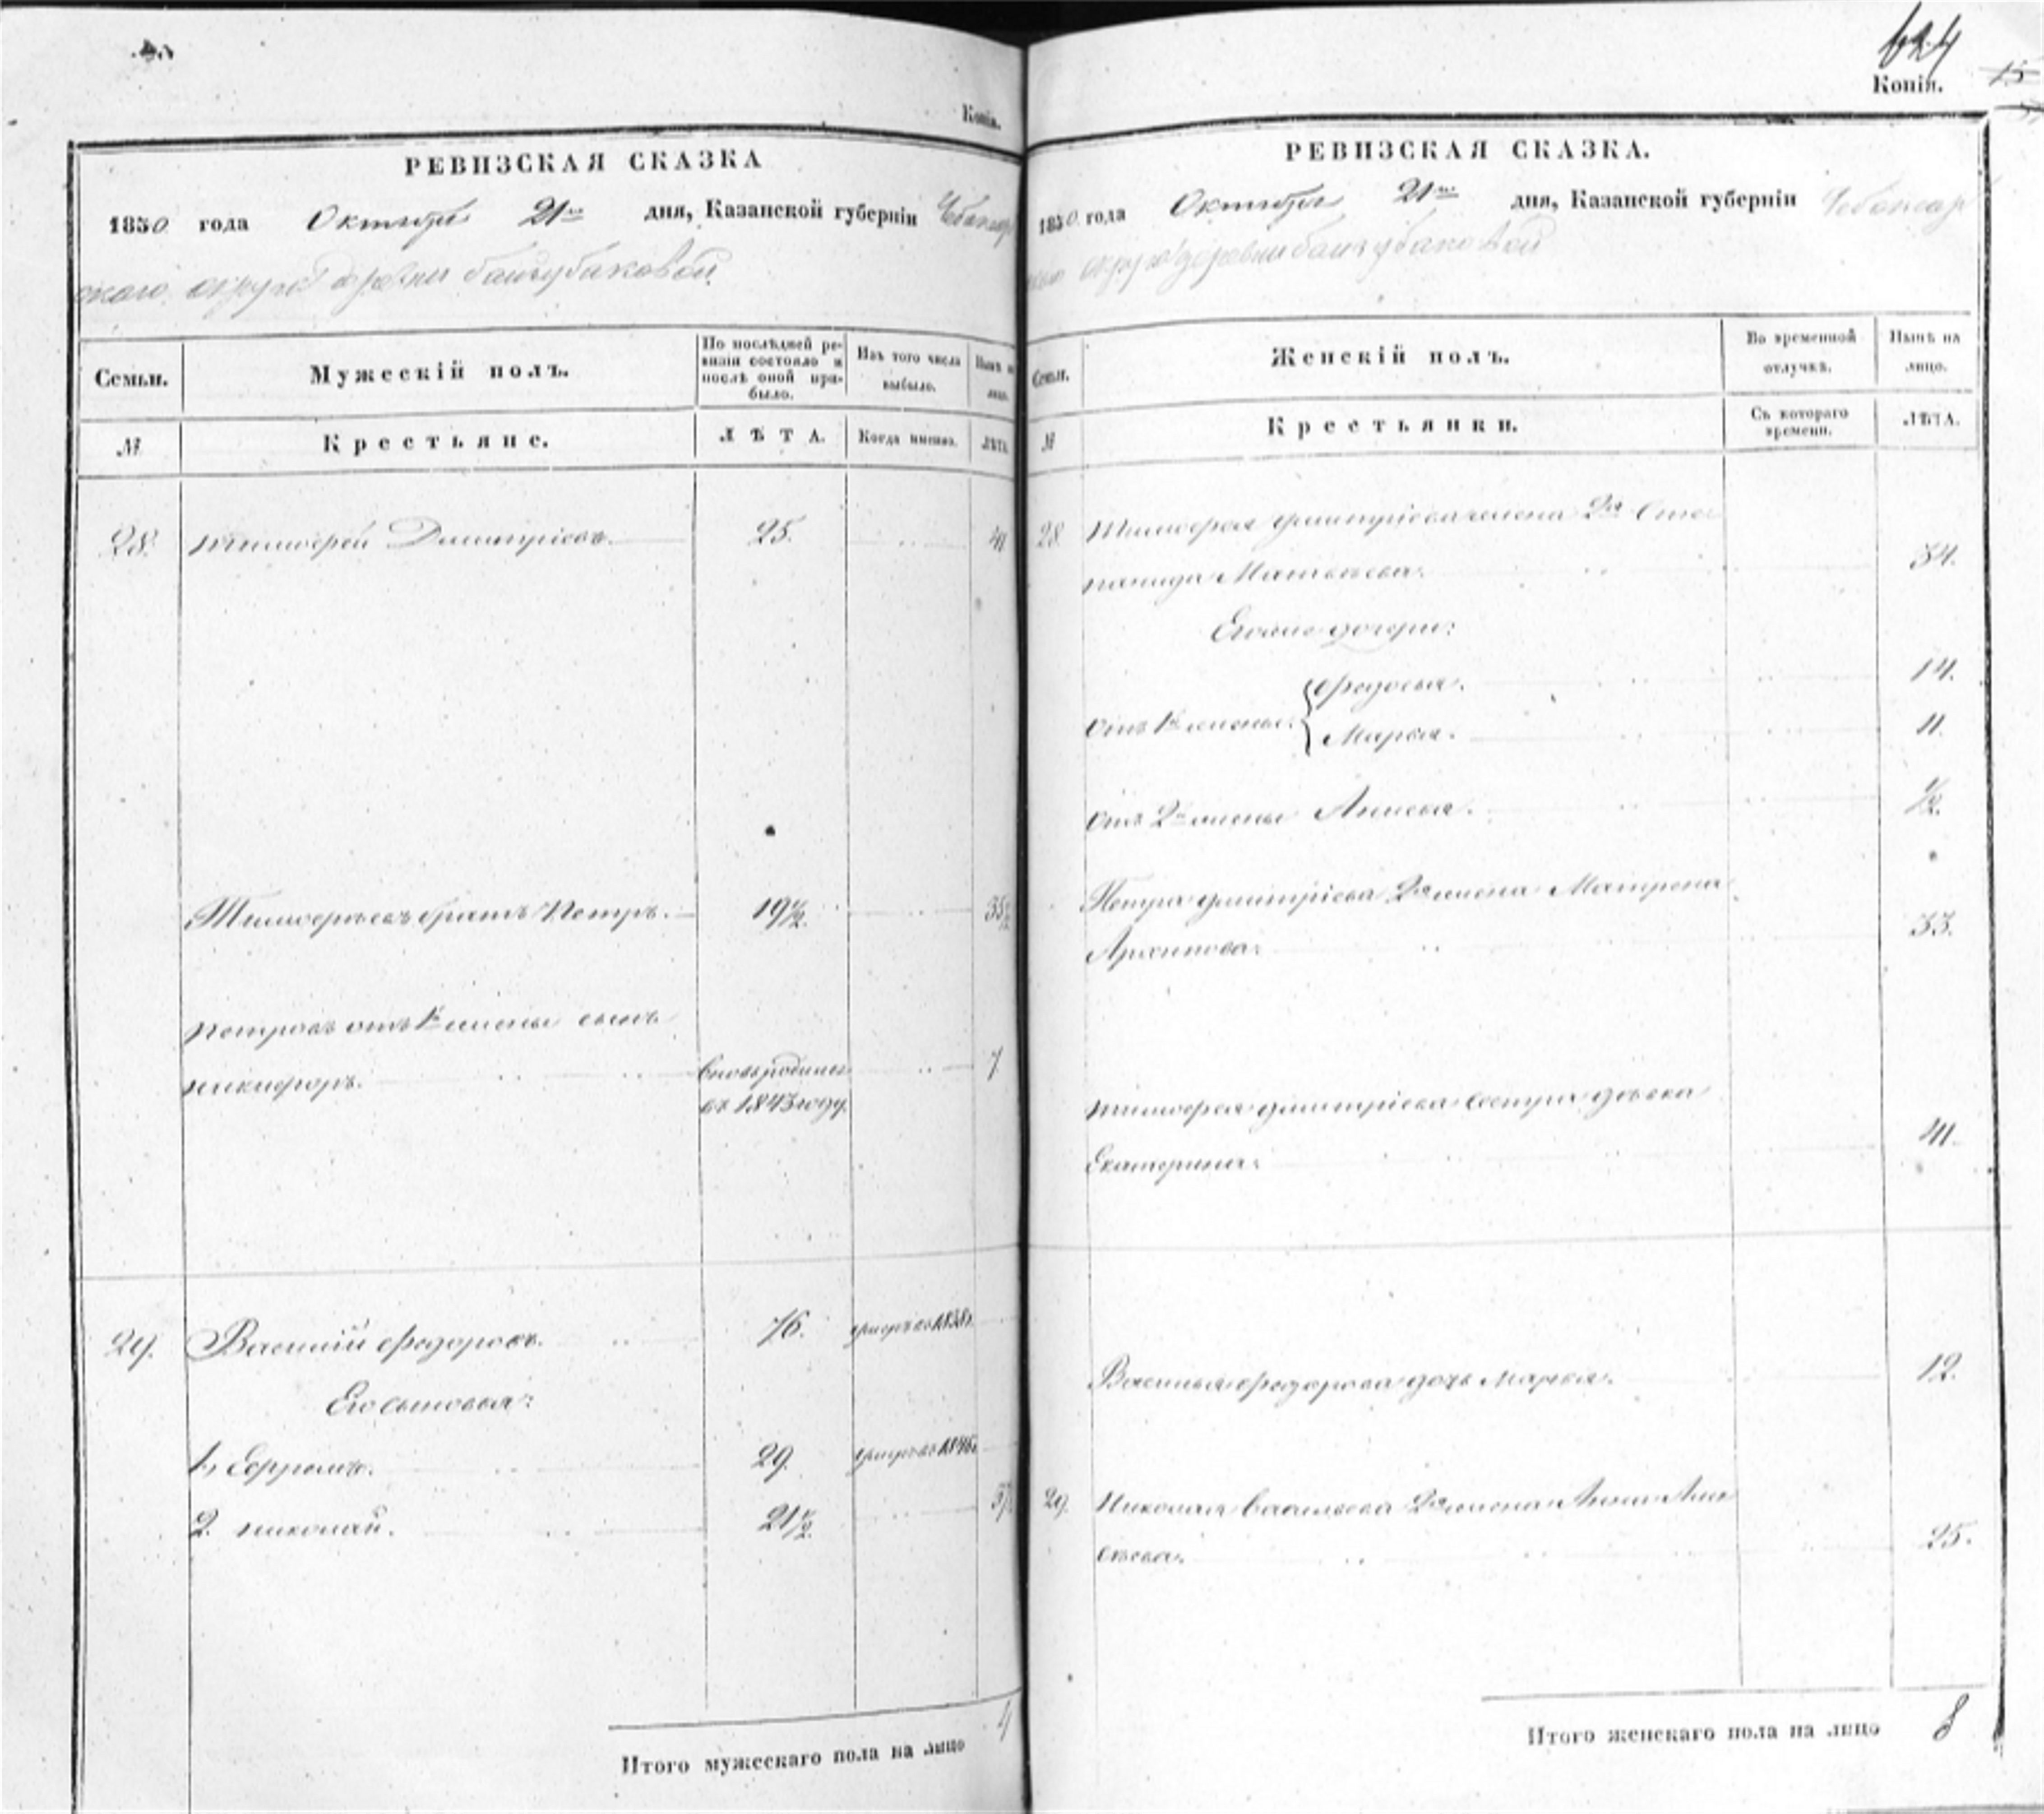 Копія.
РЕВИЗСКАЯ СКАЗКА
1850 года Октября 21го дня, Казанской губерніи Чебоксар
скаго округа деревни
Семьи.
Мужескій полъ.
По послѣдней ре-
визіи состояло и
послѣ оной при-
было.
Изъ того числа
выбыло.
Нынѣ на
лицо.
№
Крестьяне.
ЛѢТА.
Когда именно.
ЛѢТА.
28. Тимофей Димитріевъ. 25. 41
Тимофеевъ братъ Петръ. 19½. 35½
Петровъ отъ 1й жены сынъ
Никифоръ. вновь рожденъ 7
въ 1843 году.
29. Василій Федоровъ. 76. умеръ въ 1838г.
Его сыновья:
1, Ефремъ. 29. умеръ въ
2. Николай. 21½. 37.
Итого мужескаго пола на лицо 4
624
Копія. 15
РЕВИЗСКАЯ СКАЗКА.
1850 года Октября 21го дня, Казанской губерніи Чебоксар
скаго округа деревни
Семьи.
Женскій полъ.
Во временной
отлучкѣ.
Нынѣ на
лицо.
№
Крестьянки.
Съ котораго
времени.
ЛѢТА.
28. Тимофея Димитріева жена 2я Сте
панида Матвѣева. 34.
Его же дочери:
отъ 1й жены. Федосья. 14.
Марья. 11.
отъ 2й жены Анисья. ½.
Петра Димитріева 2я жена Матрена
Архипова. 33.
Тимофея Димитріева сестра дѣвка
Екатерина. 41.
Василья Федорова дочь Марья. 12.
29. Николая Васильева 2я жена Анна Али
сѣева. 25.
Итого женскаго пола на лицо 8